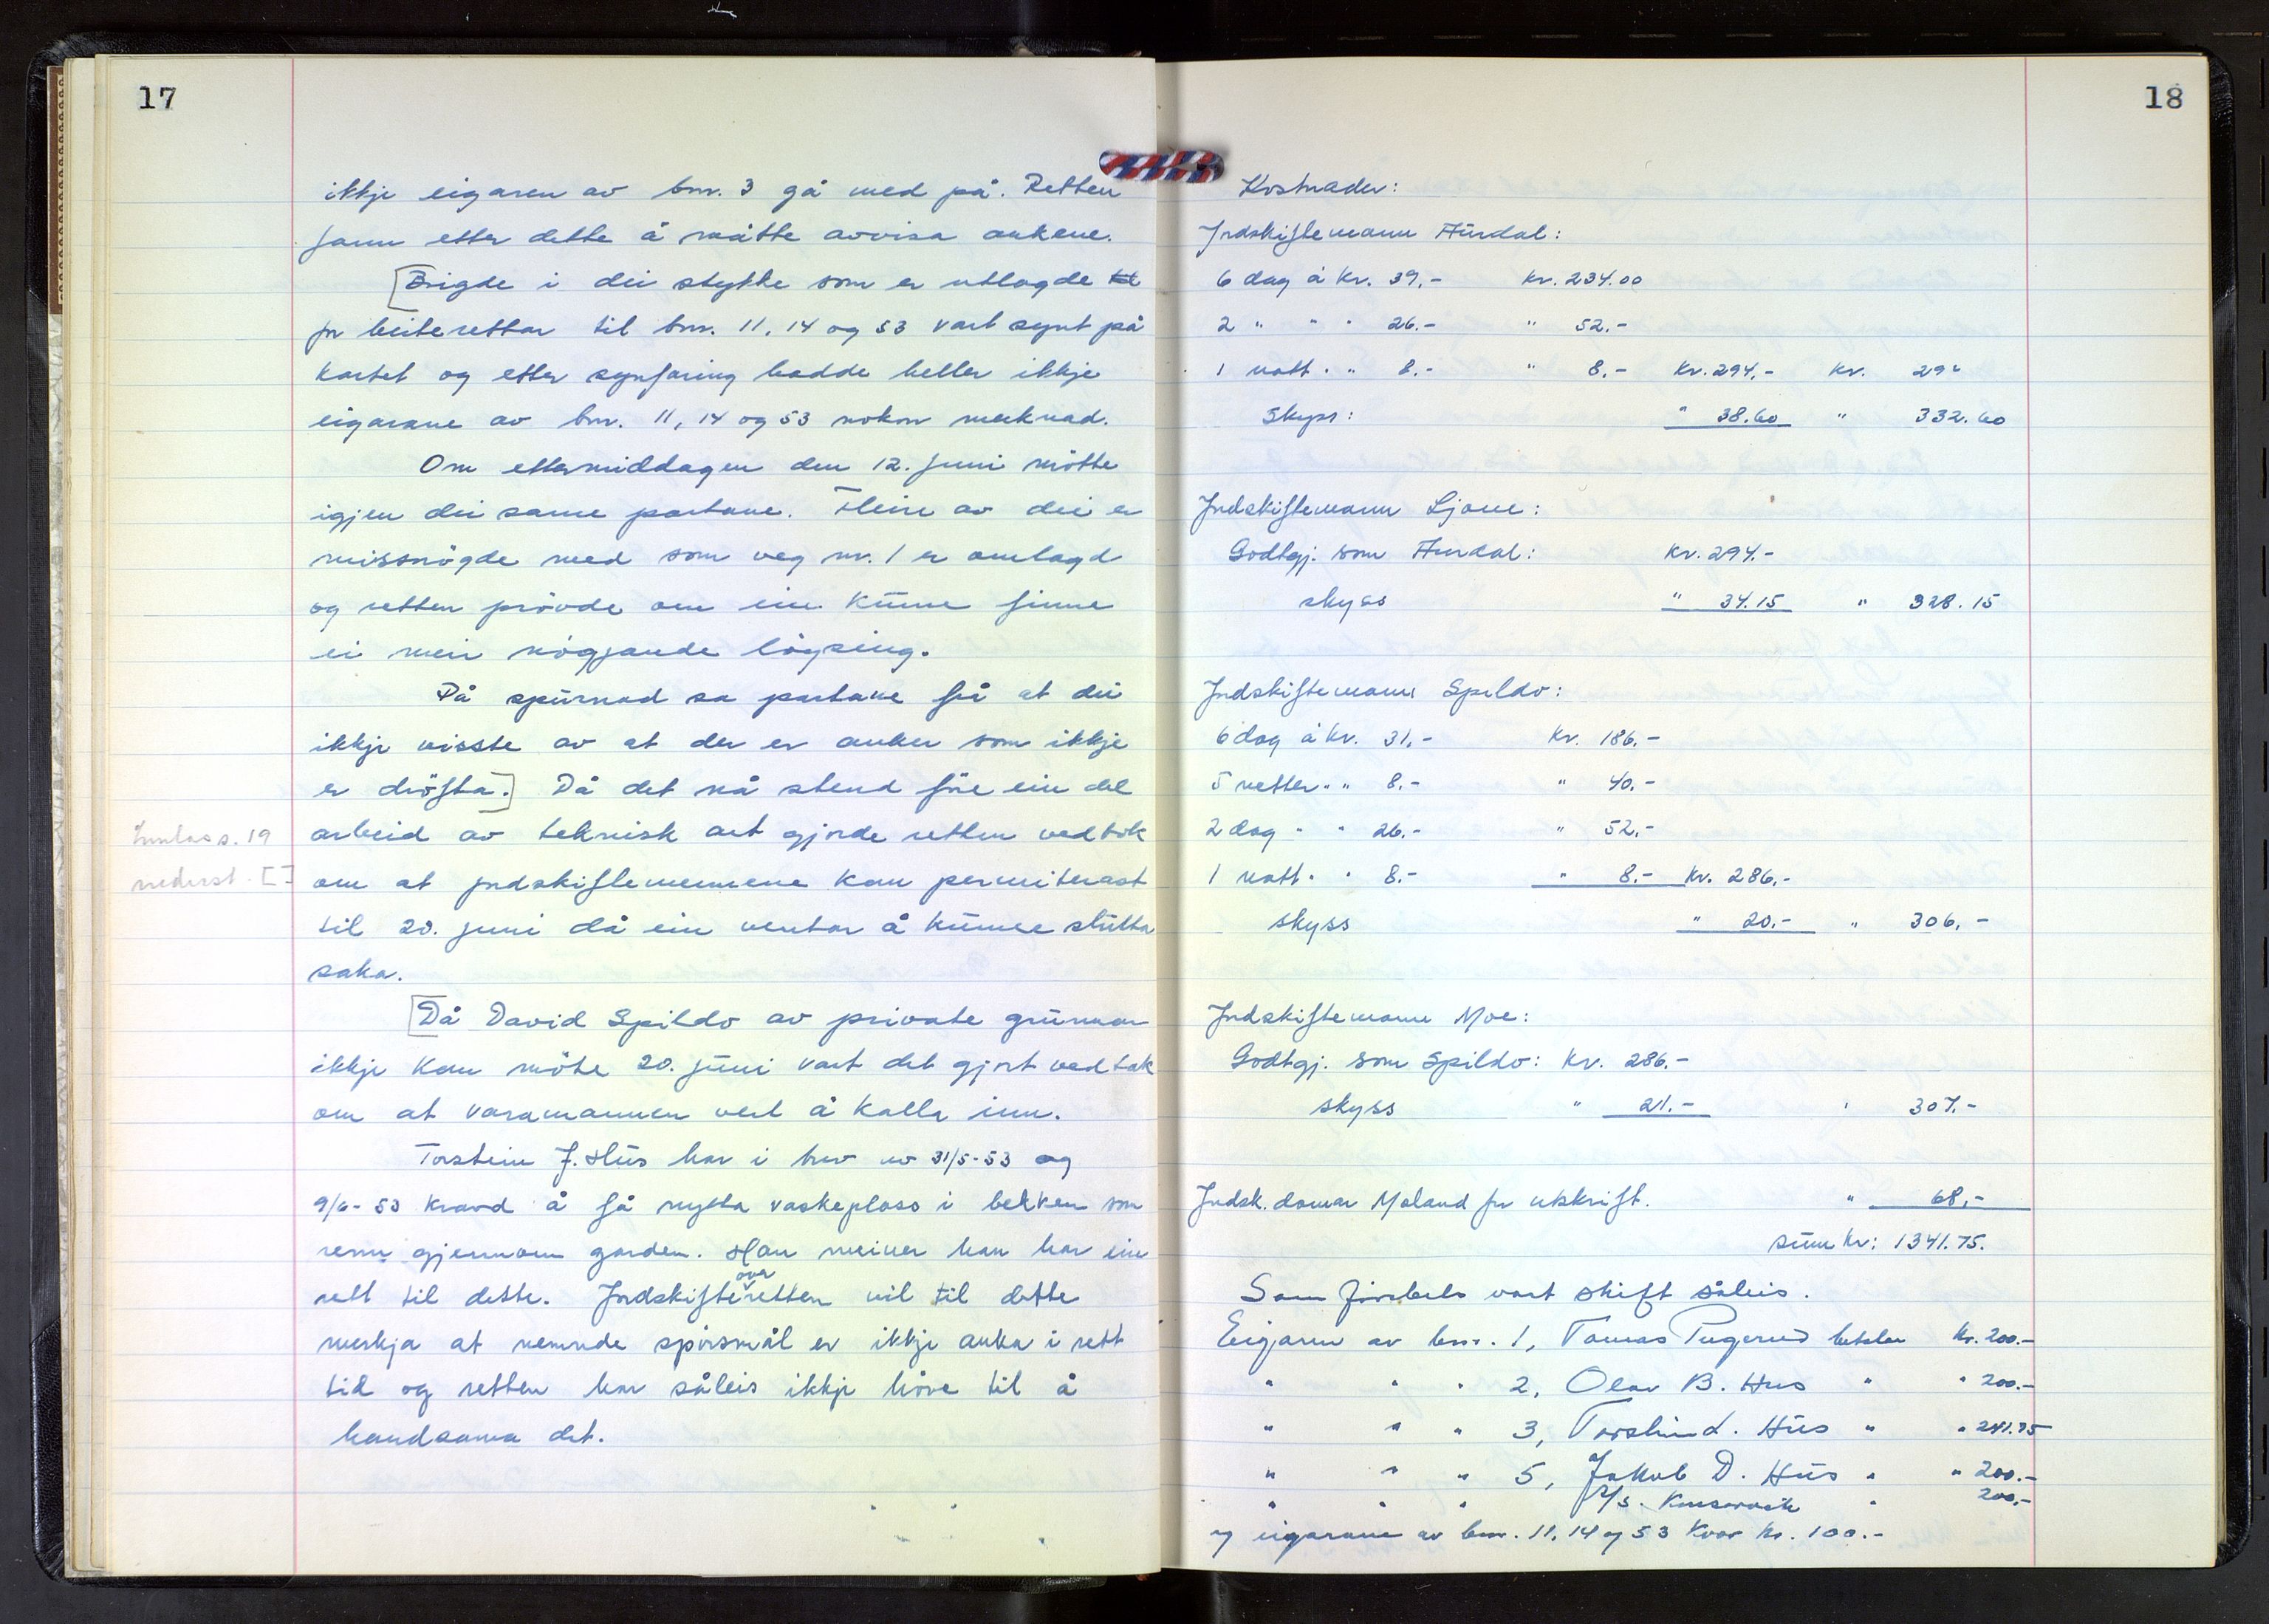 17
ikkje eigaren av bnr. 3 gå med på. Retten
fann etter dette å måtte avvisa ankene.
[Brigde i dei stykke som er utlagde til
for beiterettar til bnr. 11, 14 og 53 vart synt på
kartet og etter synfaring hadde heller ikkje
eigarane av bnr. 11, 14 og 53 nokon merknad.
Om ettermiddagen den 12. juni møtte
igjen dei same partane. Fleire av dei er
missnögde med som veg nr. 1 er omlagd
og retten prövde om ein kunne finne
ei meir nögjande löysing.
På spurnad sa partane frå at dei
ikkje visste av at der er anker som ikkje
er dröfta.] Då det nå stend före ein del
arbeid av teknisk art gjorde retten vedtak
om at jordskiftemennene kan permiterast
til 20. juni då ein ventar å kunne slutta
saka.
[Då David Spildo av private grunnar
ikkje kan möte 20. juni vart det gjort vedtak
om at varamannen vert å kalla inn.
Torstein J. Hus har i brev av 31/5-53 og
9/6-53 kravd å få nytta vaskeplass i bekken som
renn gjennom garden. Han meiner han har ein
rett til dette. Jordskifteoverretten vil til dette
merkja at nemnde spörsmål er ikkje anka i rett
tid og retten har såleis ikkje höve til å
handsama det.
s. 19
nederst. []
18
Kostnader:
Jordskiftemann Hurdal:
6 dag à kr. 39,- kr. 234.00
2 " " " 26.- " 52.-
1 natt " " 8.- " 8.- Kr. 294,- Kr. 294
Skyss: " 38.60 " 332.60
Jordskiftemann Ljone:
Godtgj. som Hurdal: Kr. 294.-
skyss " 34.15 " 328.15
Jordskiftemann Spildo:
6 dag à kr. 31,- Kr. 186.-
5 netter " " 8.- " 40.-
2 dag " " 26.- " 52.-
1 natt " " 8.- " 8.- Kr. 286,-
skyss " 20.- " 306,-
Jordskiftemann Moe:
Godtgj. som Spildo: Kr. 286.-
skyss " 21.- " 307.-
Jordsk. domar Moland for utskrift. " 68,-
sum Kr: 1341.75.
Som förebels vart skift såleis.
Eigaren av bnr. 1, Tomas betaler Kr. 200.-
" " " 2, Olav B. Hus " " 200.-
" " " 3, Torstein J. Hus " " 241.75
" " " 5, Jakob D. Hus " " 200.-
" " " A/S. Kinsarvik " 200,-
og eigarane av bnr. 11, 14 og 53 kvar kr. 100.-